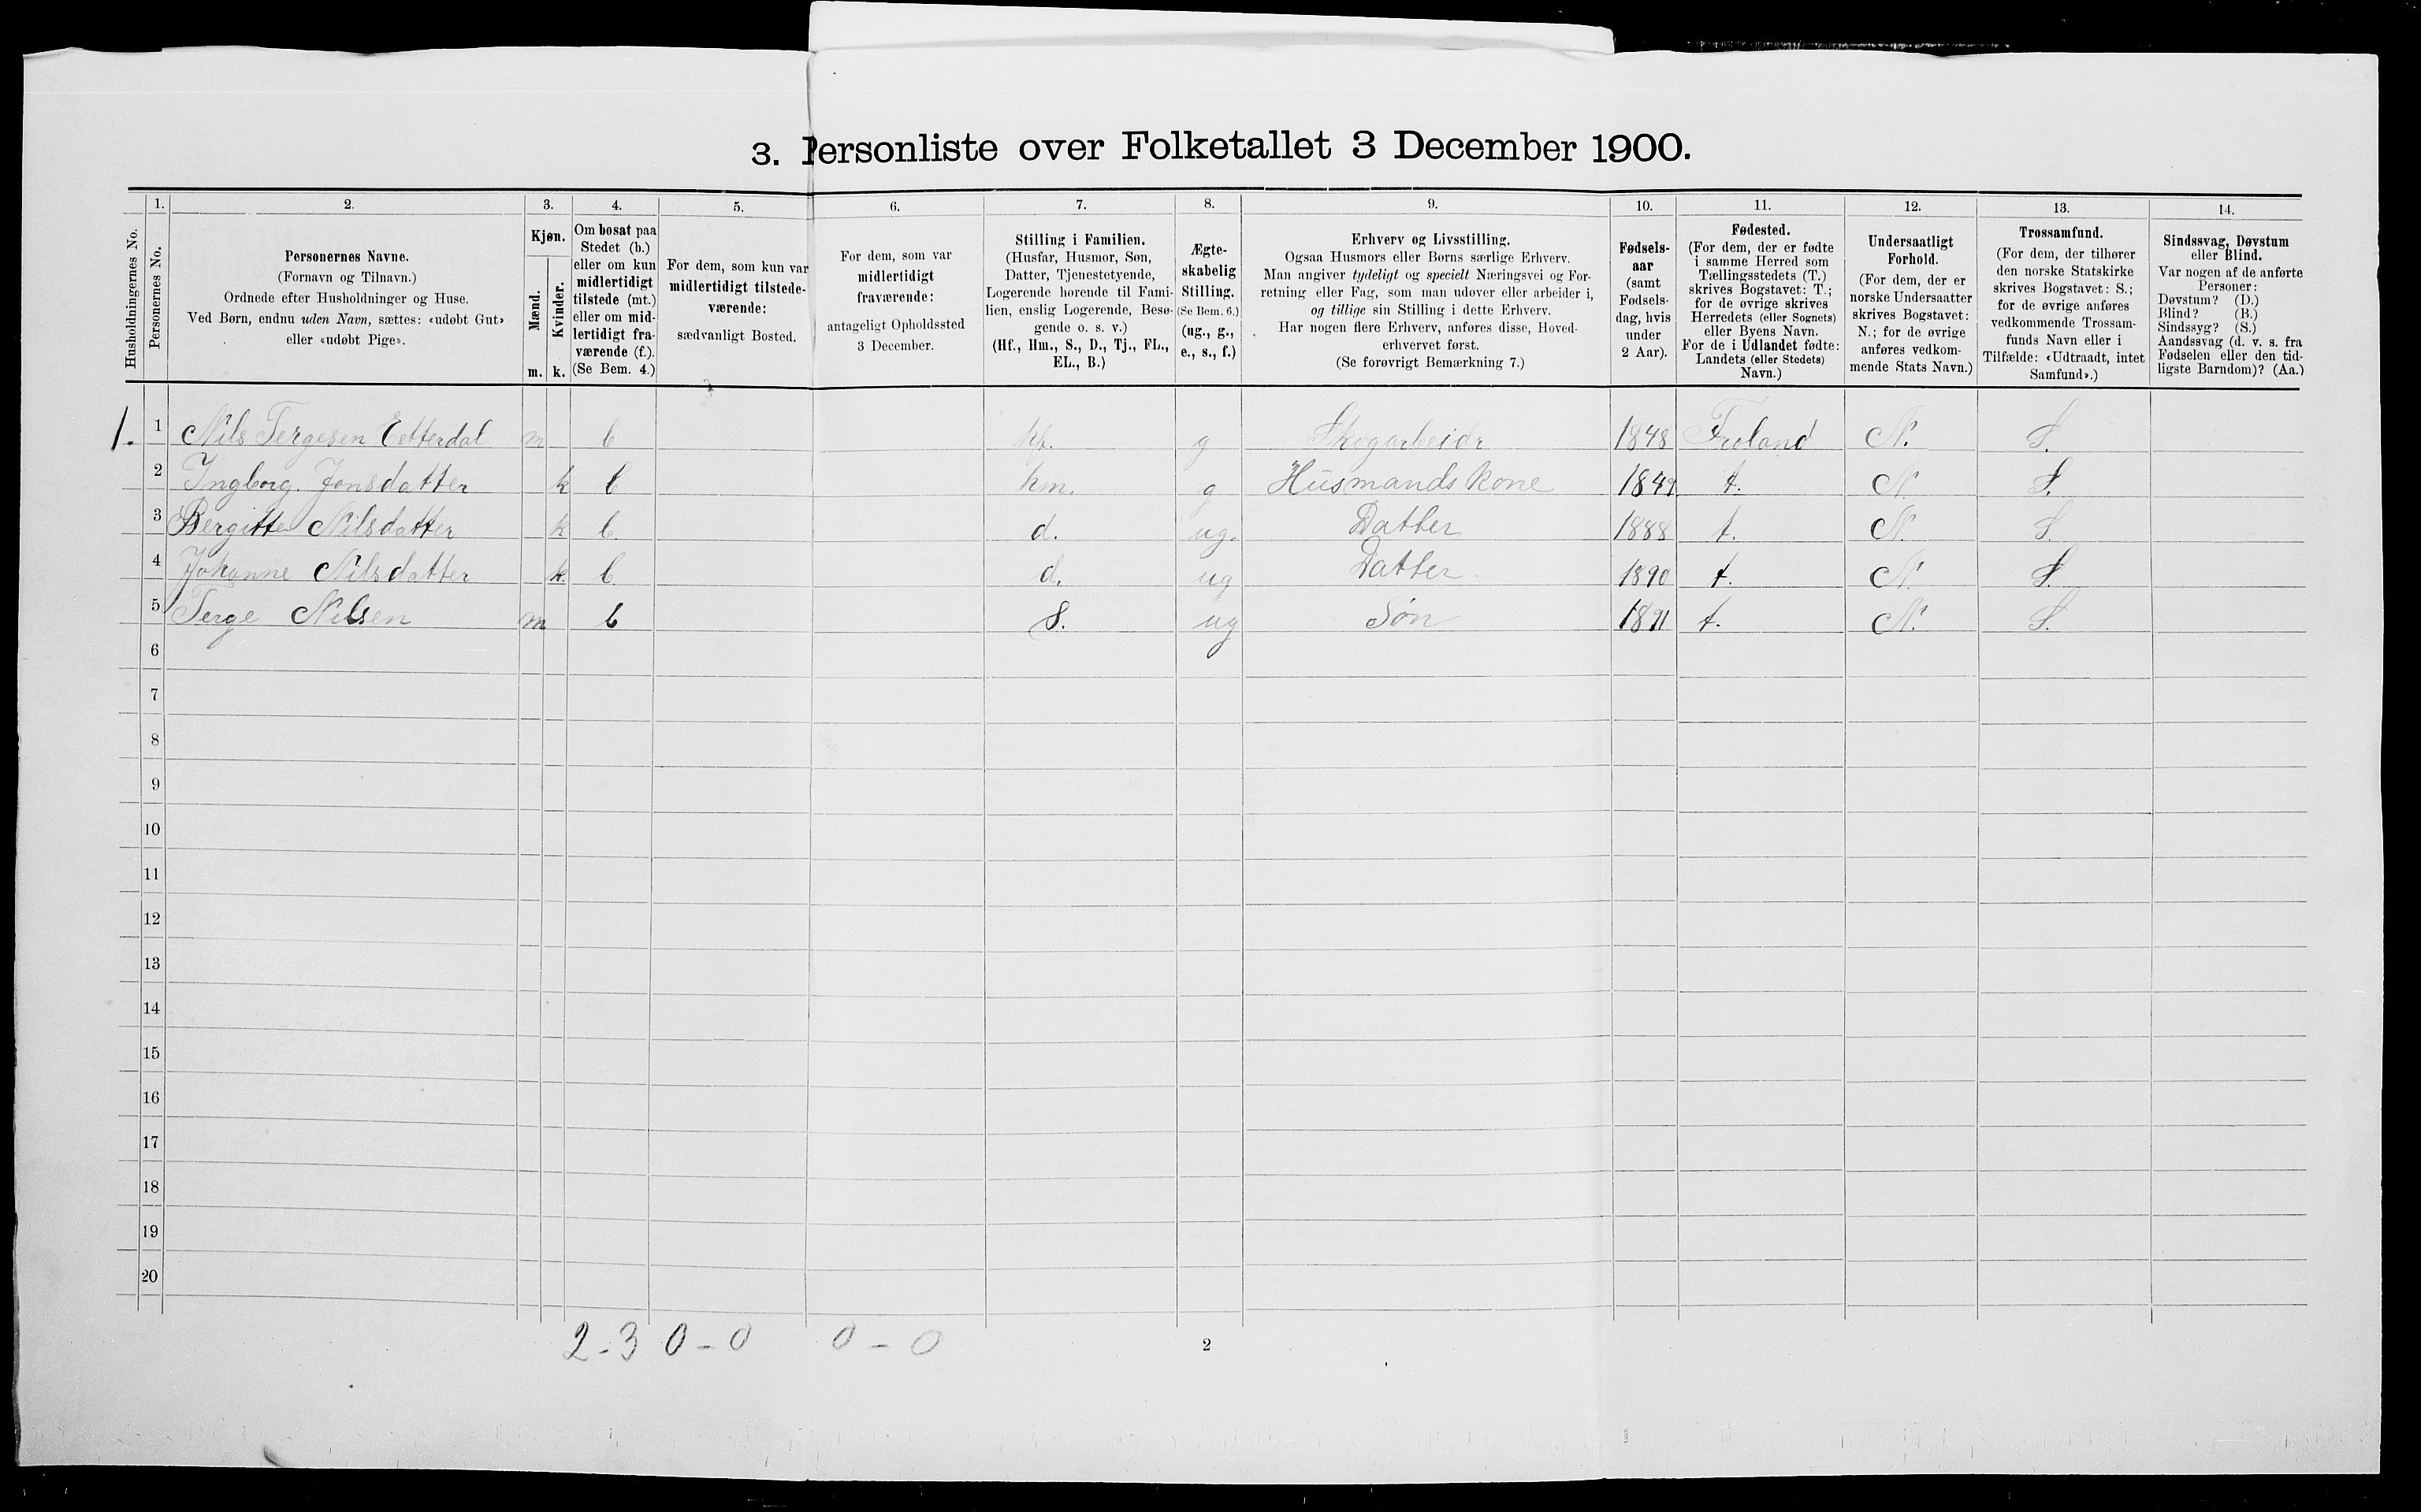 3. Personliste over Folketallet 3 December 1900.
1. 2. 3. 4. 5. 6. 7. 8. 9. 10. 11. 12. 13. 14.
Husholdningernes No.
Personernes No.
Personernes Navne.
(Fornavn og Tilnavn.)
Ordnede efter Husholdninger og Huse.
Ved Børn, endnu uden Navn, sættes: «udøbt Gut»
eller «udøbt Pige».
Kjøn.
Mænd.
Kvinder.
m. k.
Om bosat paa
Stedet (b.)
eller om kun
midlertidigt
tilstede (mt.)
eller om mid-
lertidigt fra-
værende (f.).
(Se Bem. 4.)
For dem, som kun var
midlertidigt tilstede-
værende:
sædvanligt Bosted.
For dem, som var
midlertidigt
fraværende:
antageligt Opholdssted
3 December.
Stilling i Familien.
(Husfar, Husmor, Søn,
Datter, Tjenestetyende,
Logerende hørende til Fami-
lien, enslig Logerende, Besø-
gende o. s. v.)
(Hf., Hm., S., D., Tj., FL.,
EL., B.)
Ægte-
skabelig
Stilling.
(Se Bem. 6.)
(ug., g.,
e., s., f.)
Erhverv og Livsstilling.
Ogsaa Husmors eller Børns særlige Erhverv.
Man angiver tydeligt og specielt Næringsvei og For-
retning eller Fag, som man udøver eller arbeider i,
og tillige sin Stilling i dette Erhverv.
Har nogen flere Erhverv, anføres disse, Hoved-
erhvervet først.
(Se forøvrigt Bemærkning 7.)
Fødsels-
aar
(samt
Fødsels-
dag, hvis
under
2 Aar).
Fødested.
(For dem, der er fødte
i samme Herred som
Tællingsstedets (T.)
skrives Bogstavet: T.;
for de øvrige skrives
Herredets (eller Sognets)
eller Byens Navn.
For de i Udlandet fødte:
Landets (eller Stedets)
Navn.)
Undersaatligt
Forhold.
(For dem, der er
norske Undersaatter
skrives Bogstavet:
N.; for de øvrige
anføres vedkom-
mende Stats Navn.)
Trossamfund.
(For dem, der tilhører
den norske Statskirke
skrives Bogstavet: S.;
for de øvrige anføres
vedkommende Trossam-
funds Navn eller i
Tilfælde: «Udtraadt, intet
Samfund».)
Sindssvag, Døvstum
eller Blind.
Var nogen af de anførte
Personer:
Døvstum? (D.)
Blind? (B.)
Sindssyg? (S.)
Aandssvag (d. v. s. fra
Fødselen eller den tid-
ligste Barndom)? (Aa.)
1. 1 Nils Tergesen Eetterdal m b hf. g Skogarbeidr 1848 Froland N. S.
2 Ingborg. Jonsdatter k b hm. g Husmands Kone 1849 t. N. S.
3 Bergitte Nilsdatter k b. d. ug. Datter 1888 t. N. S.
4 Johanne Nilsdatter k. b d. ug Datter. 1890 t. N. S.
5 Terge Nilsen m b S. ug Søn 1891 t. N. S.
6
7
8
9
10
11
12
13
14
15
16
17
18
19
20
2-3 0-0 0-0 2